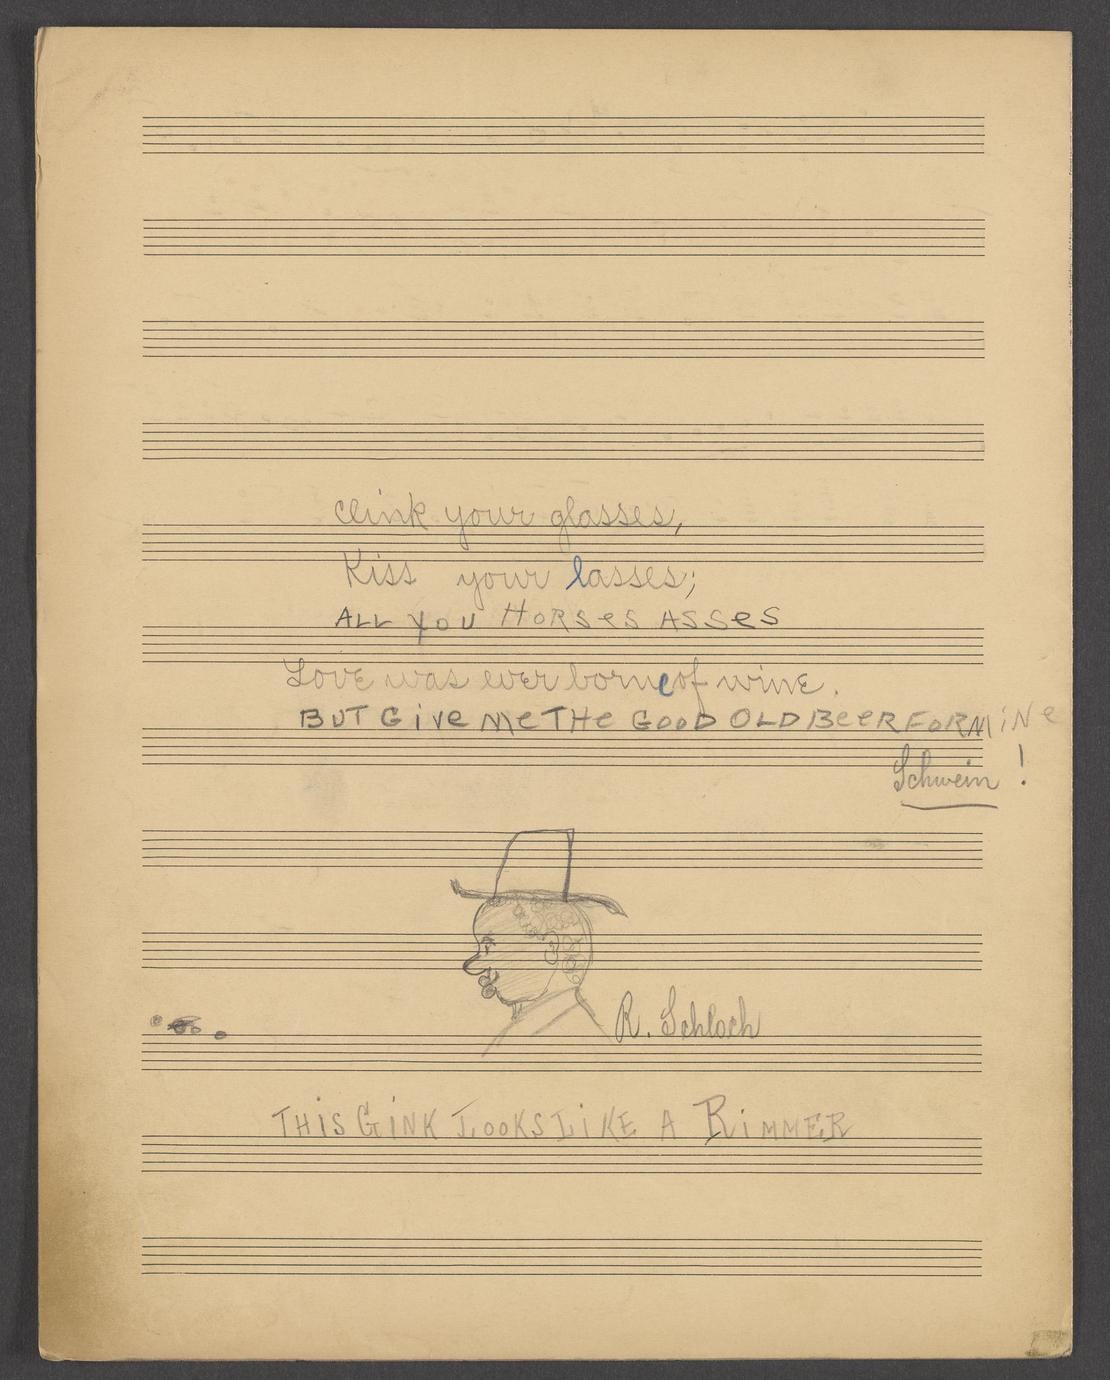 Clink your glasses,
Kiss your lasses;
ALL YOU HORSES ASSES
Love was ever borne of wine.
BUT GIVE ME THE GOOD OLD BEER FOR MINE
Schwein !
R. Schloch
THIS GINK LOOKS LIKE A RIMMER